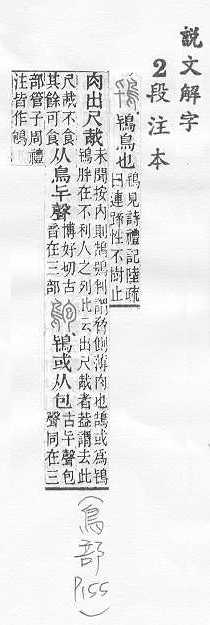 說文解字
2段注本
鴇鳥也
鴇見詩禮記陸疏
曰連蹄性不樹止
肉出尺胾
未聞按內則鵠鴞胖謂脅側薄肉也鵠或爲鴇
鴇胖在不利人之列此云出尺胾者葢謂去此
尺胾不食
其餘可食
从鳥𠤏聲
博好切古
音在三部
鴇或从包
古𠤏聲包
聲同在三
部管子周禮
注皆作
(鳥部 P155)